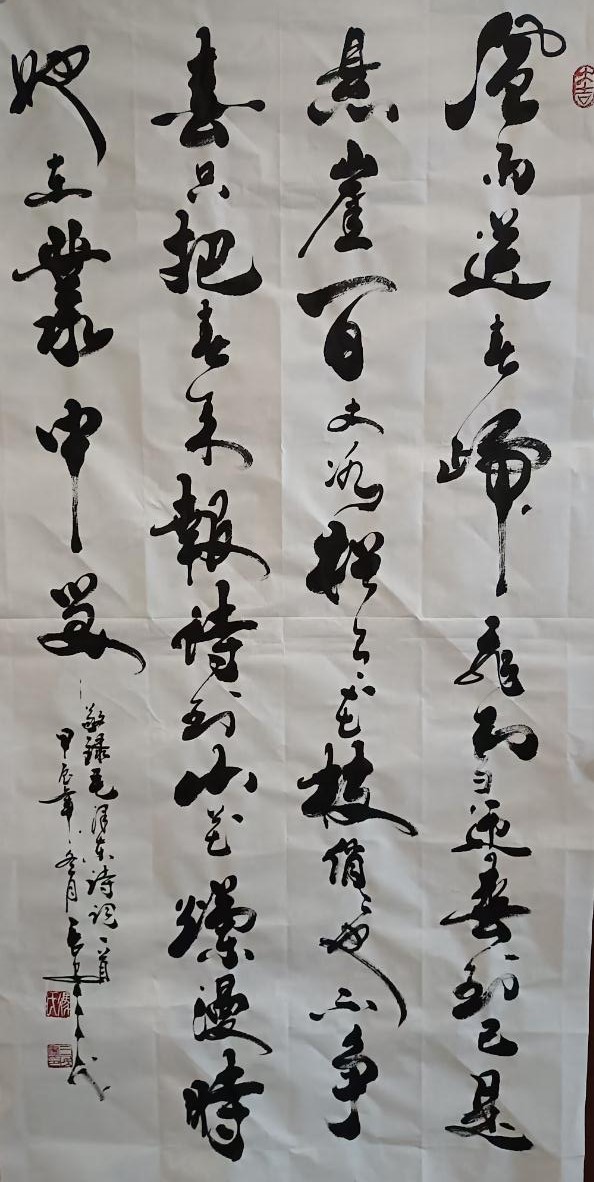 大吉
風雨送春歸飛雪迎春到已是
悬崖百丈冰猶有花枝俏俏也不争
春只把春来報待到山花爛漫時
她在叢中笑
敬録毛泽东诗词一首
甲辰年冬月